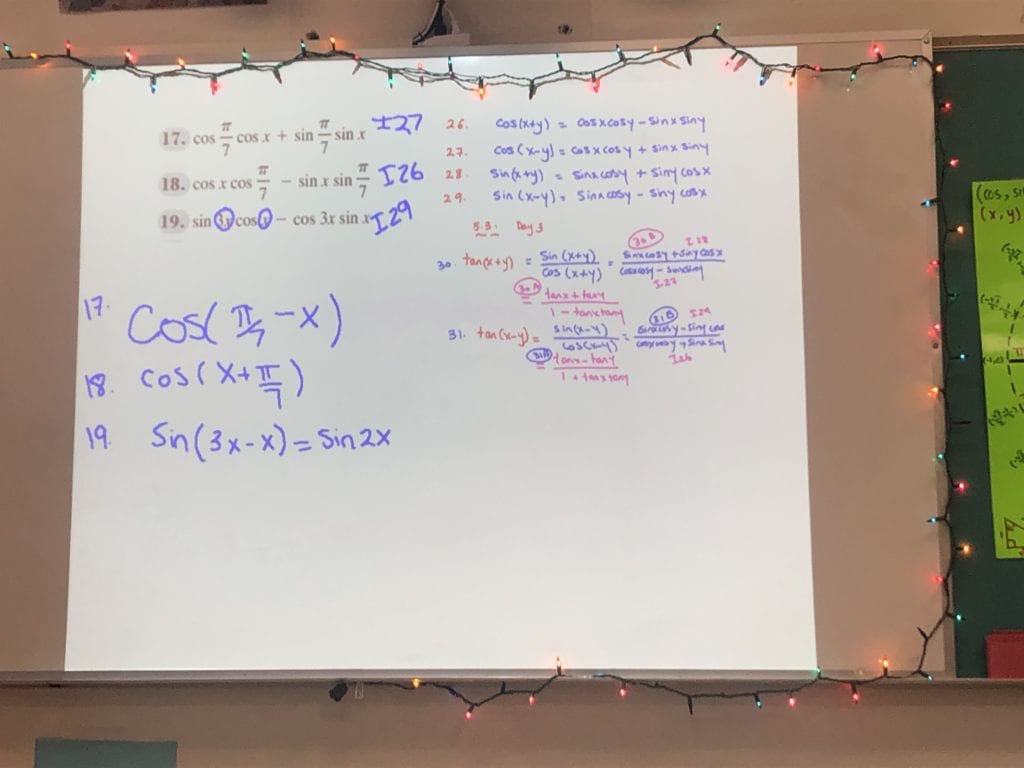 17. cos π/7 cos x + sin π/7 sin x I27
18. cos x cos π/7 − sin x sin π/7 I26
19. sin 3x cos x − cos 3x sin x I29
17. Cos(π/7 − x)
18. cos(x + π/7)
19. Sin(3x − x) = Sin 2x
26. cos(x+y) = cosxcosy − sinxsiny
27. cos(x−y) = cosxcosy + sinxsiny
28. sin(x+y) = sinxcosy + sinycosx
29. sin(x−y) = sinxcosy − sinycosx
5.3: Day 3
30. tan(x+y) = sin(x+y)/cos(x+y) = 30B sinxcosy + sinycosx/cosxcosy − sinxsiny I28 I27
30A = tanx + tany/1 − tanxtany
31. tan(x−y) = sin(x−y)/cos(x−y) = 31B sinxcosy − sinycosx/cosxcosy + sinxsiny I29 I26
31A = tanx − tany/1 + tanxtany
(cos, si
(x, y)